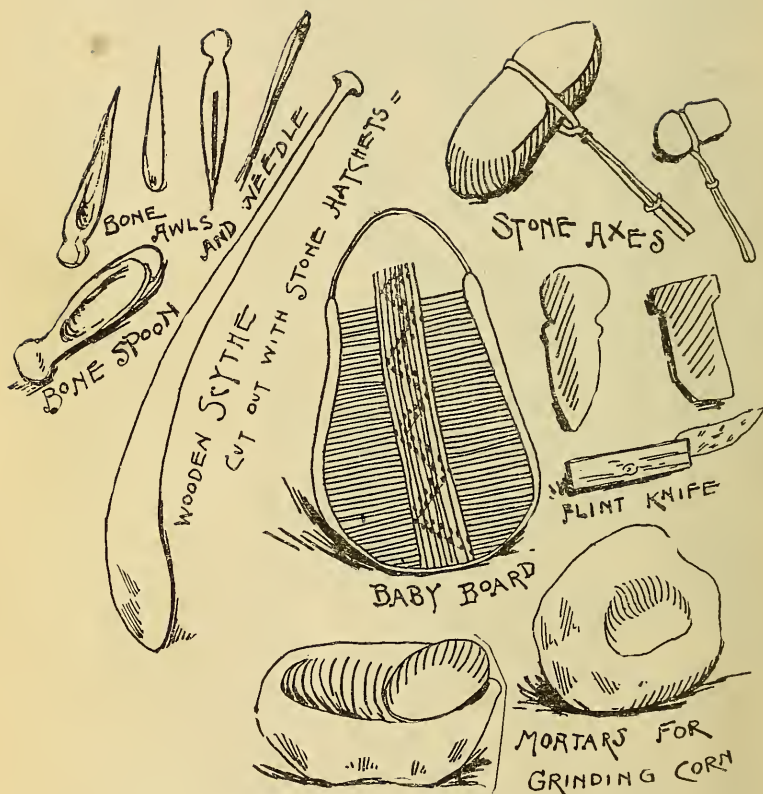 BONE
AWLS
AND NEEDLE
STONE AXES
BONE SPOON
WOODEN SCYTHE
CUT OUT WITH STONE HATCHETS =
FLINT KNIFE
BABY BOARD
MORTARS FOR
GRINDING CORN